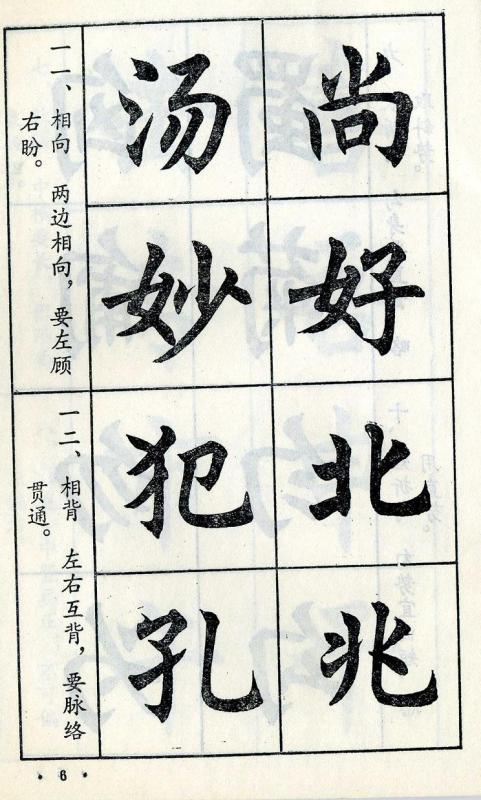 尚好
汤妙
一一、相向 两边相向，要左顾
右盼。
北兆
犯孔
一二、相背 左右互背，要脉络
贯通。
·6·